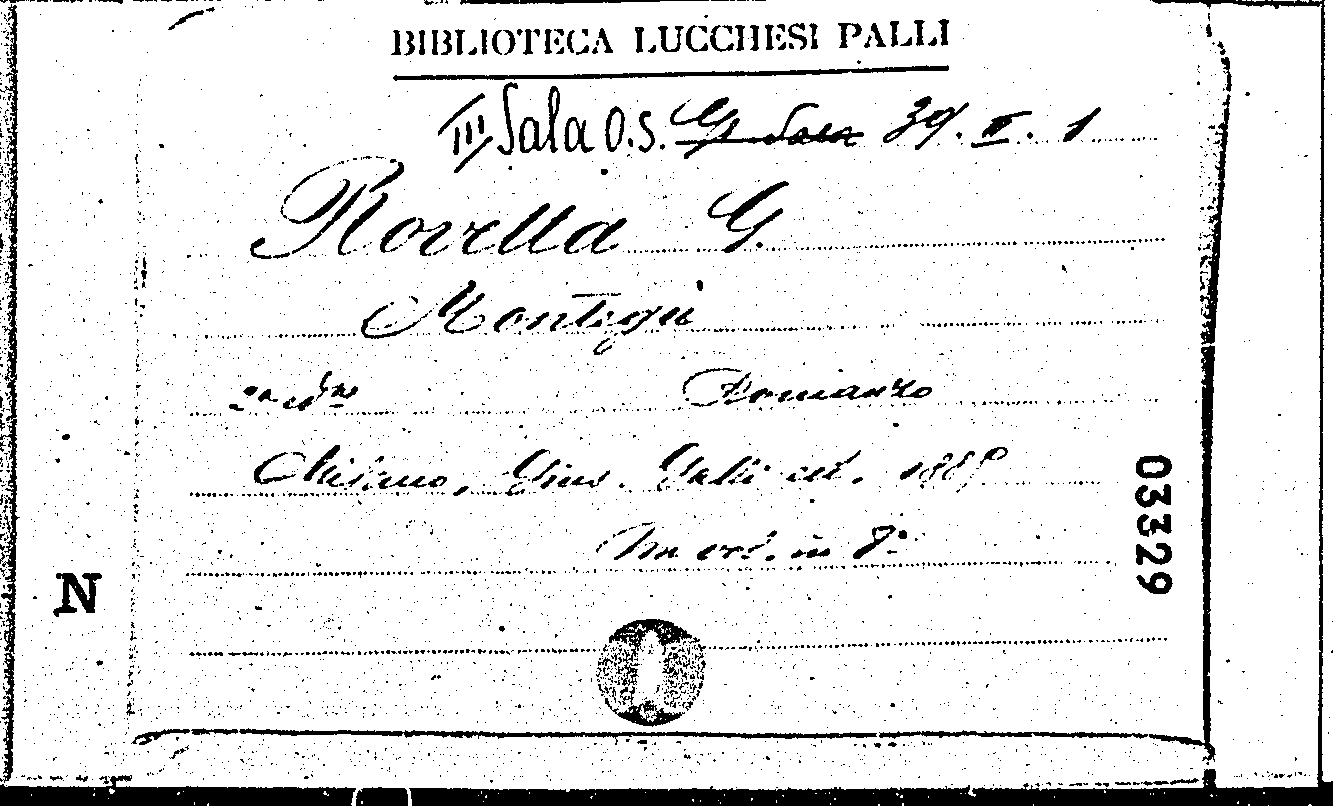 BIBLIOTECA LUCCHESI PALLI
III Sala O.S. G Sala 39. II. 1
Rovella G.
Montegù
2ª edne Romanzo
Milano, Gius. Galli ed. 1889
in 8º
03329
N